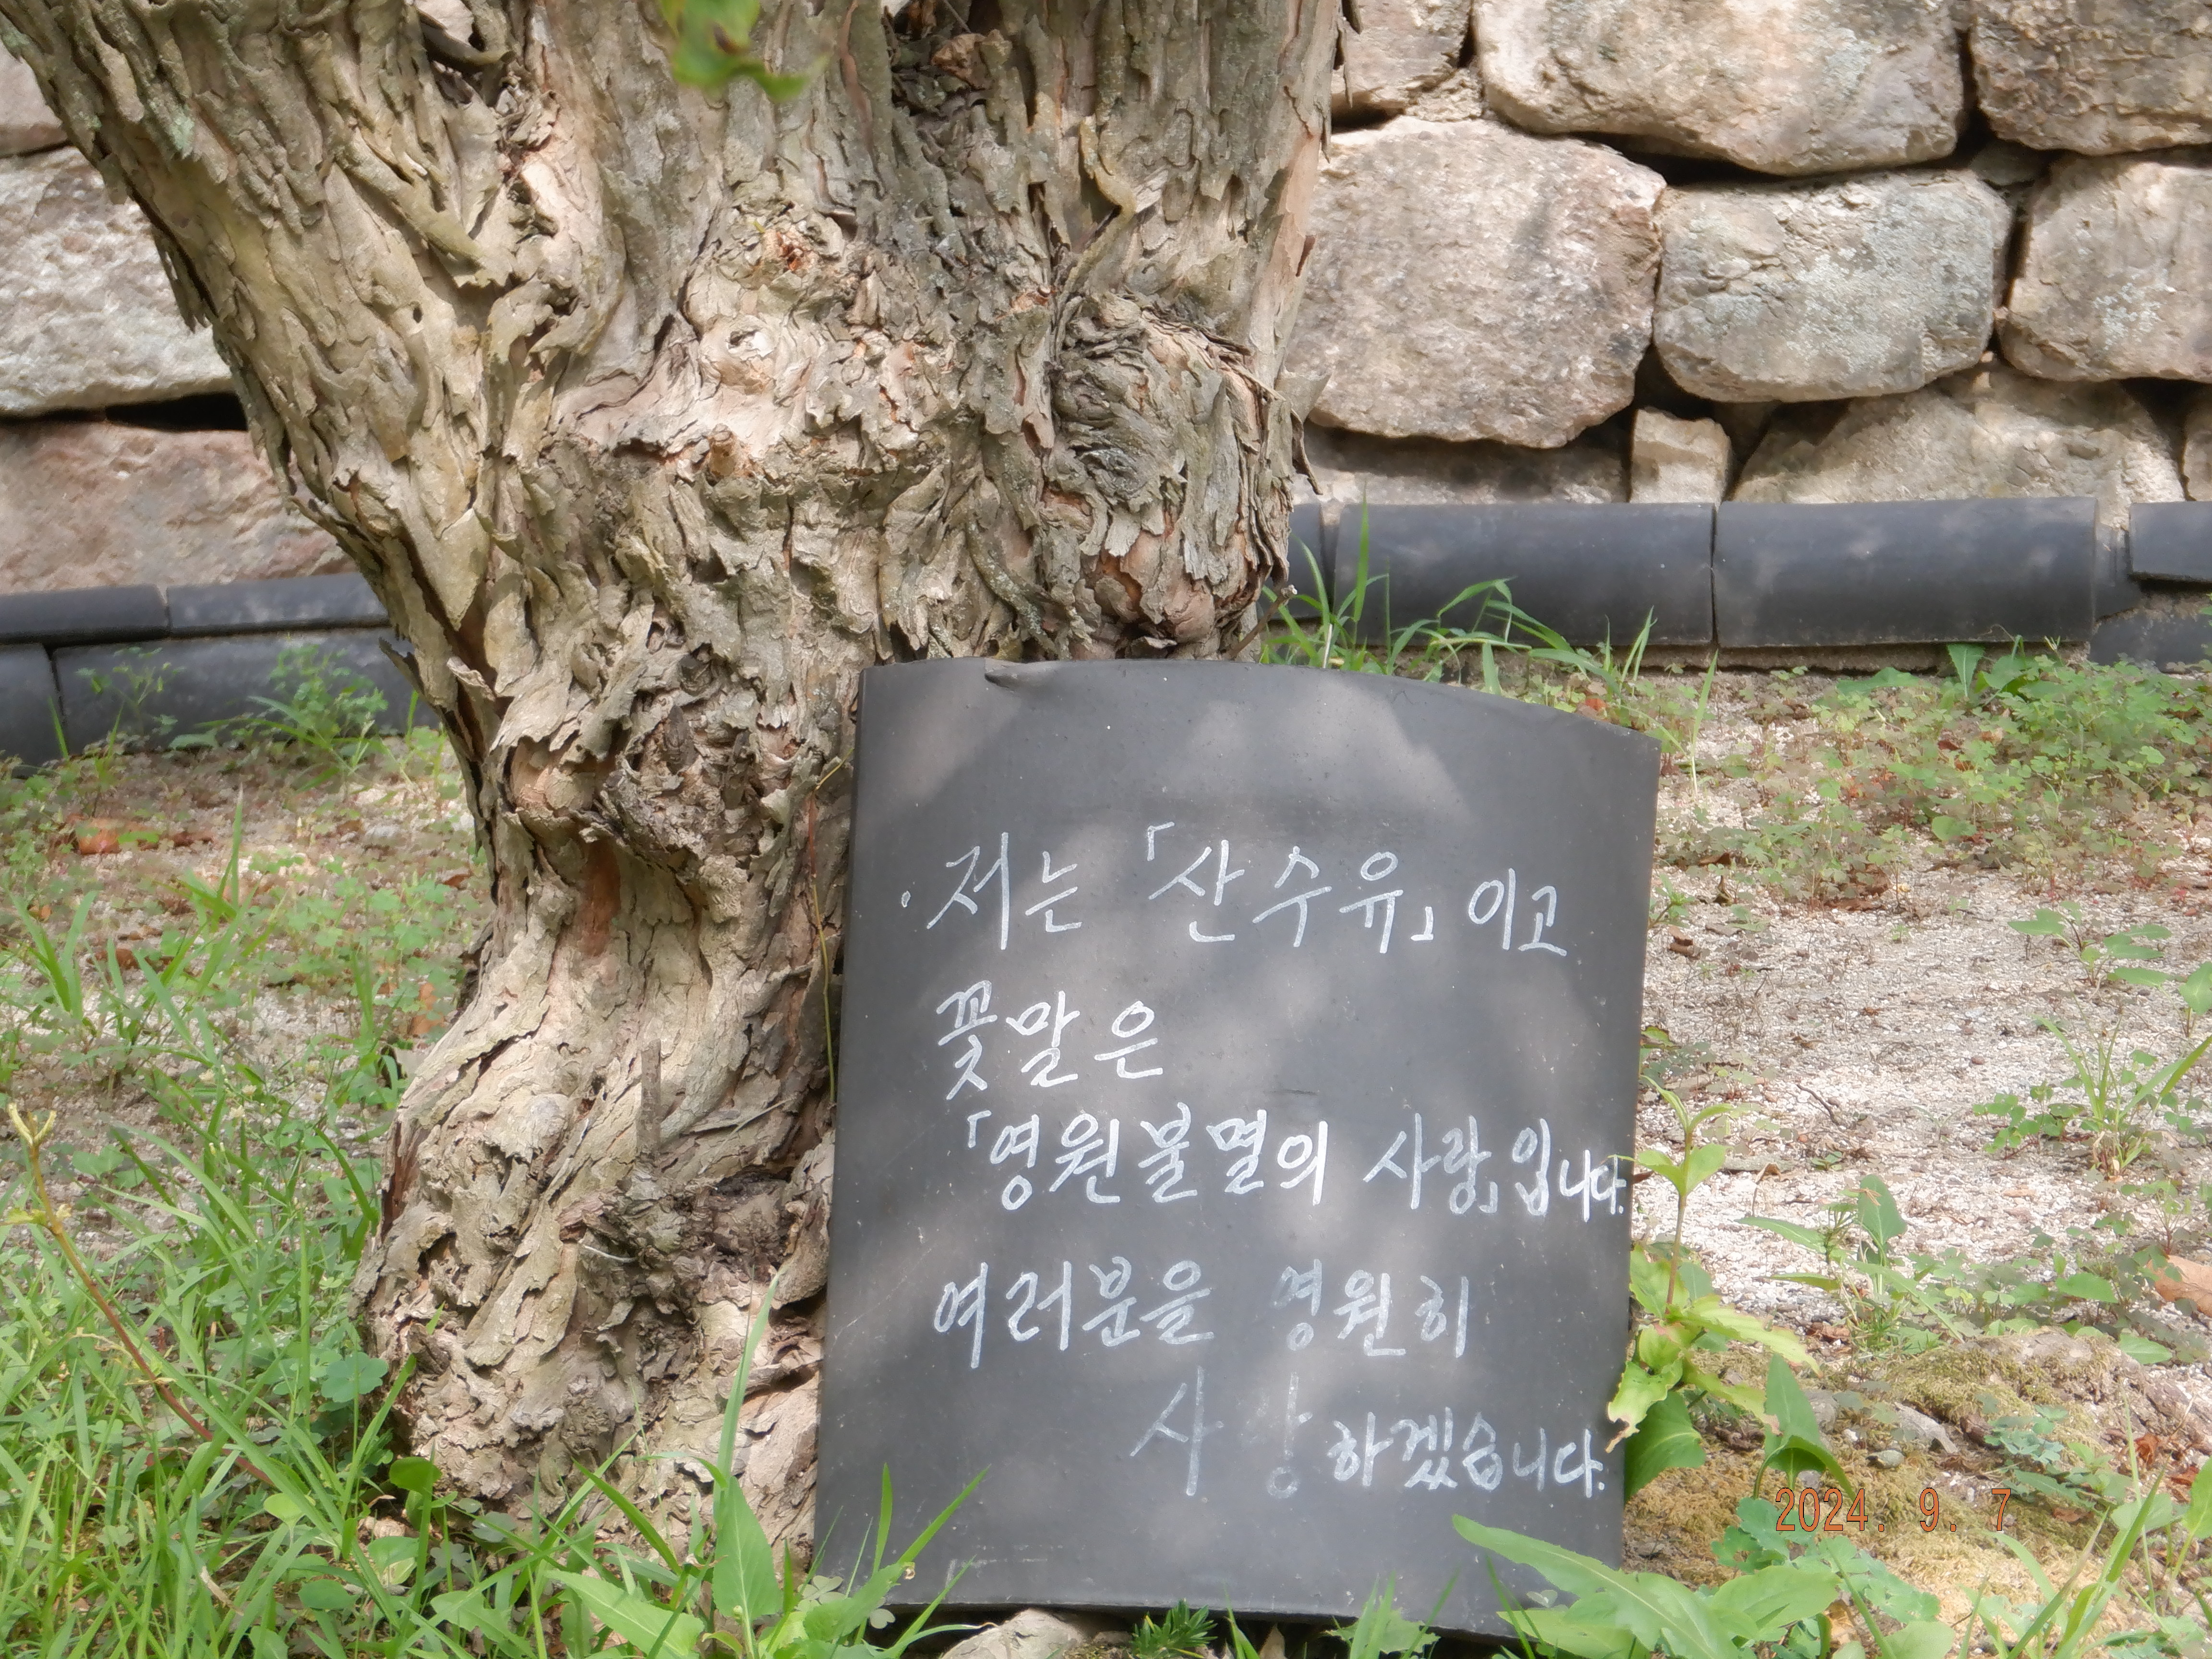 · 저는 「산수유」 이고
꽃말은
「영원불멸의 사랑」입니다.
여러분을 영원히
사랑하겠습니다.
2024. 9. 7